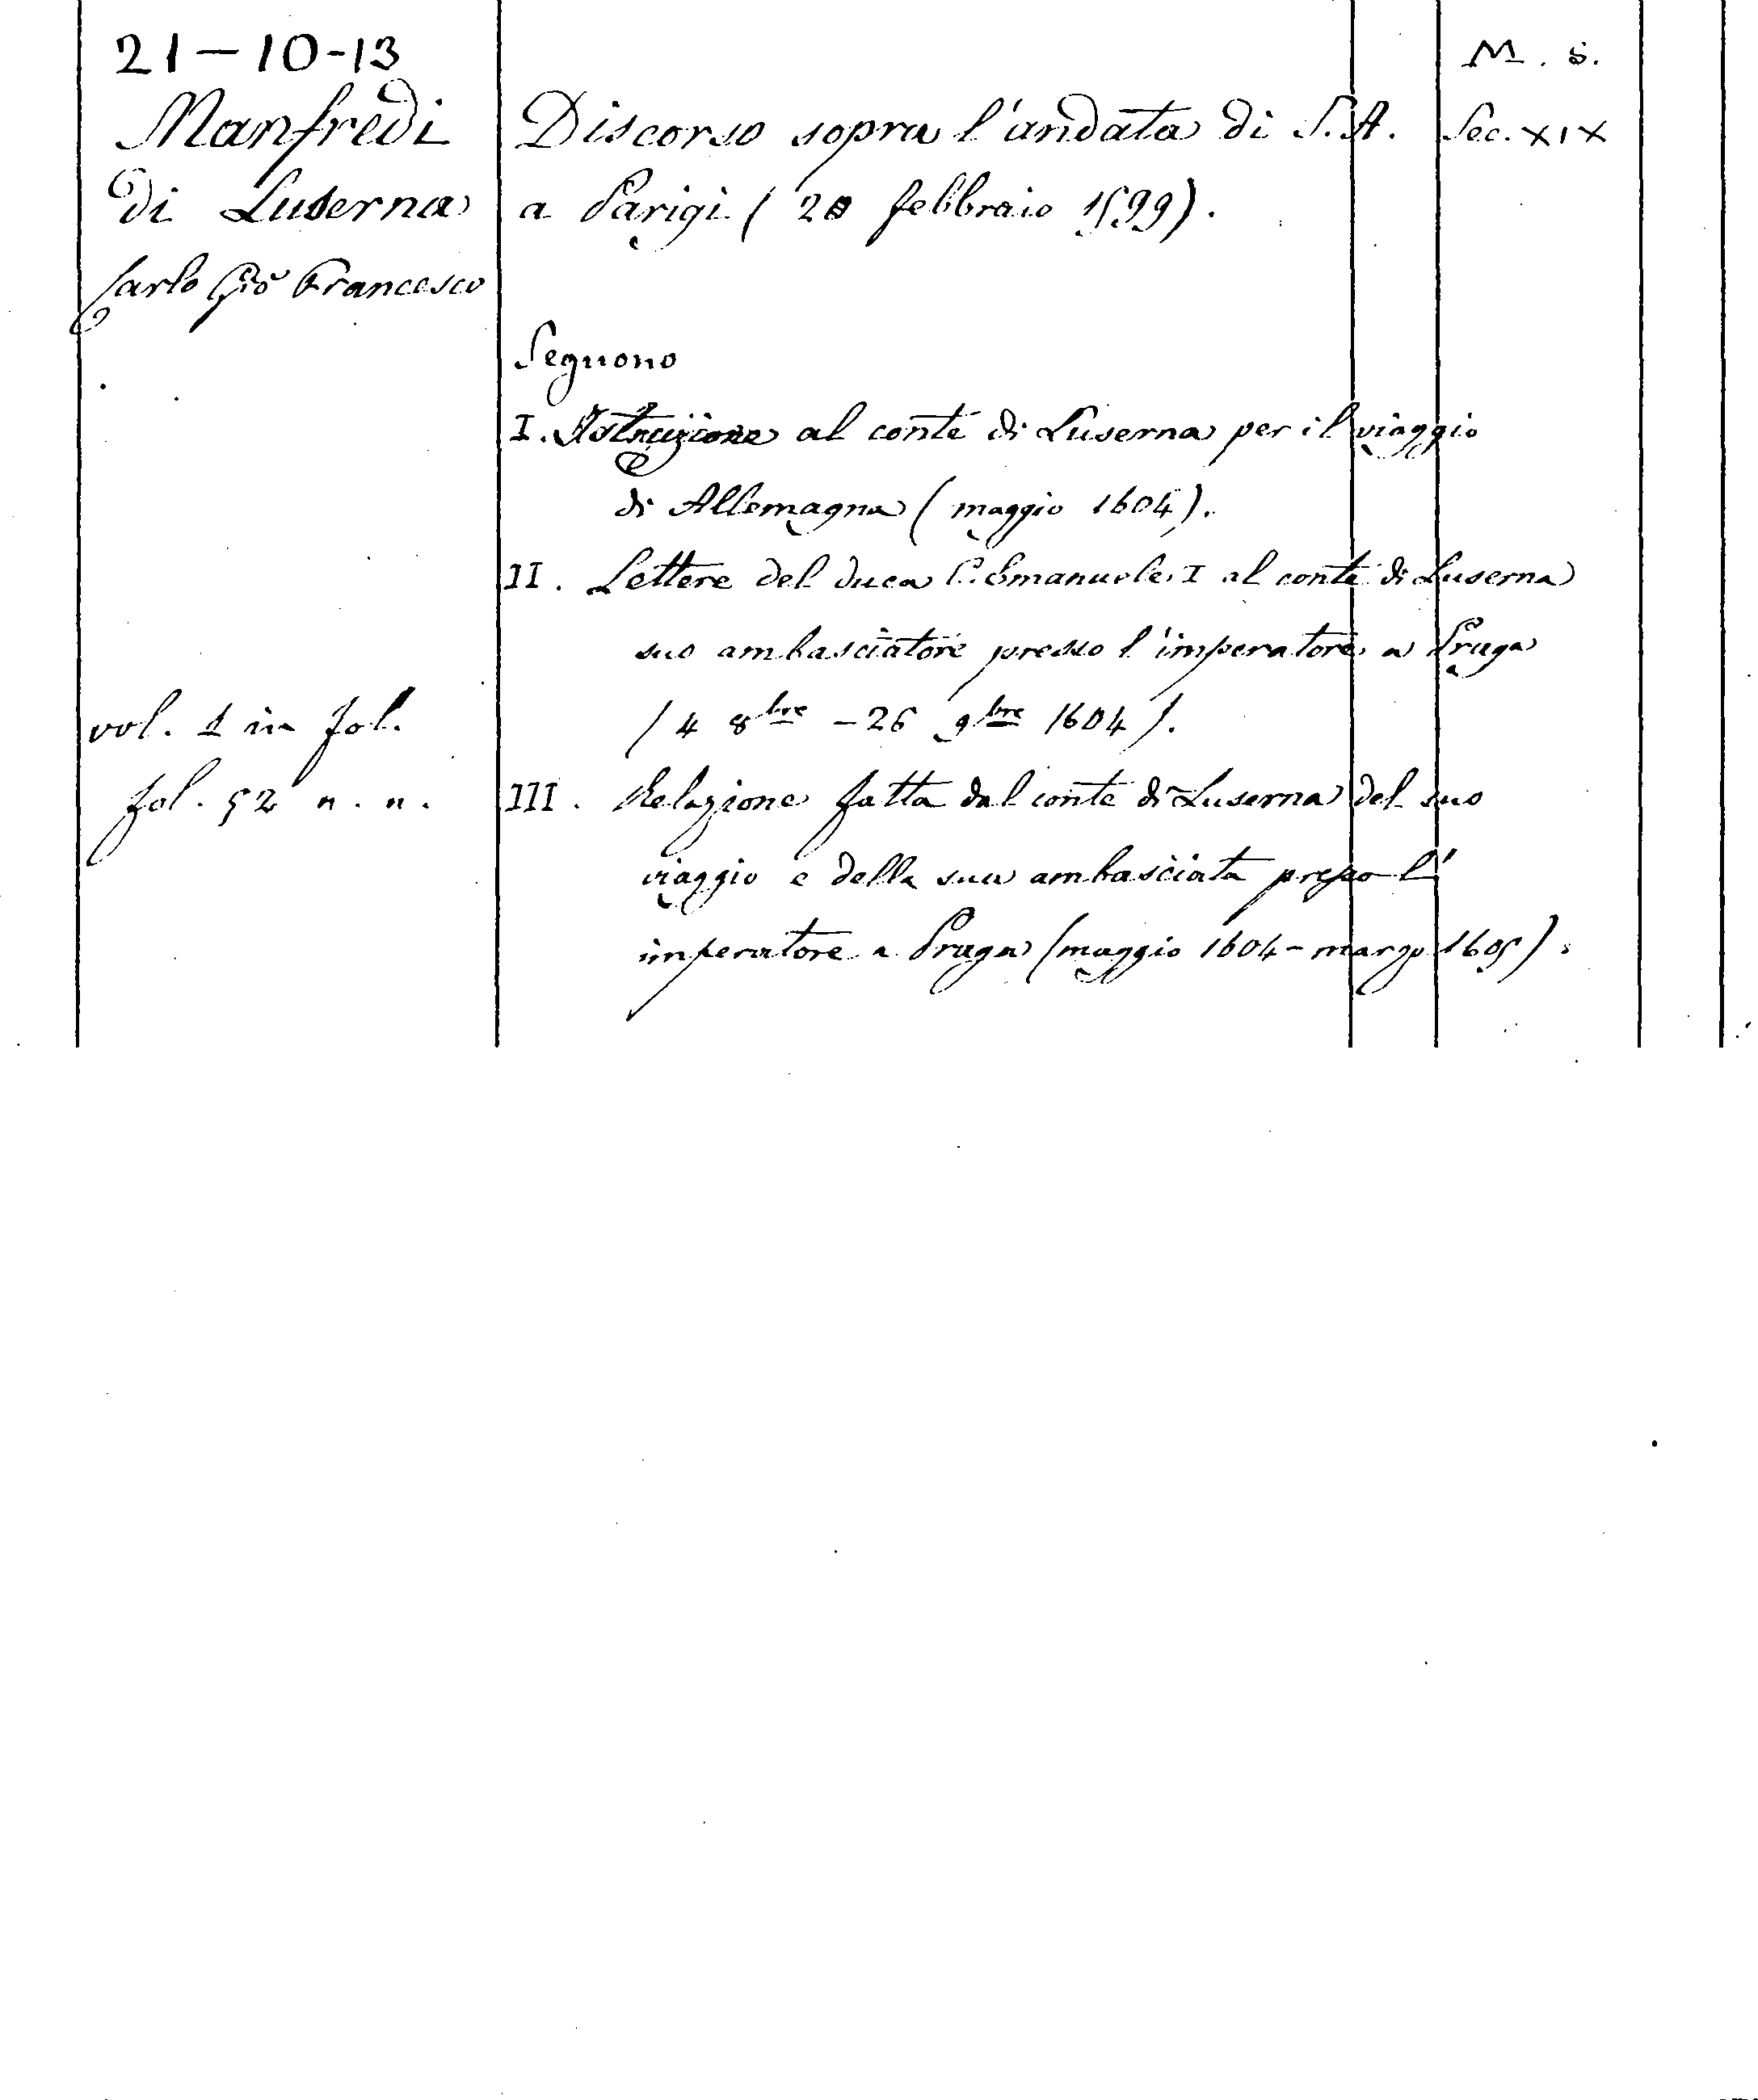 21-10-13
M. s.
Manfredi
di Luserna
Carlo Gio Francesco
vol. 1 in fol.
fol. 52 n. n.
Discorso sopra l'andata di S.A.
a Parigi (20 febbraio 1599).
Sec. XIX
Seguono
I. Istruzione al conte di Luserna per il viaggio
di Allemagna (maggio 1604).
II. Lettere del duca C. Emanuele I al conte di Luserna
suo ambasciatore presso l'imperatore a Praga
(4 8bre - 26 9bre 1604).
III. Relazione fatta dal conte di Luserna del suo
viaggio e della sua ambasciata presso l'
imperatore a Praga (maggio 1604 - marzo 1605).